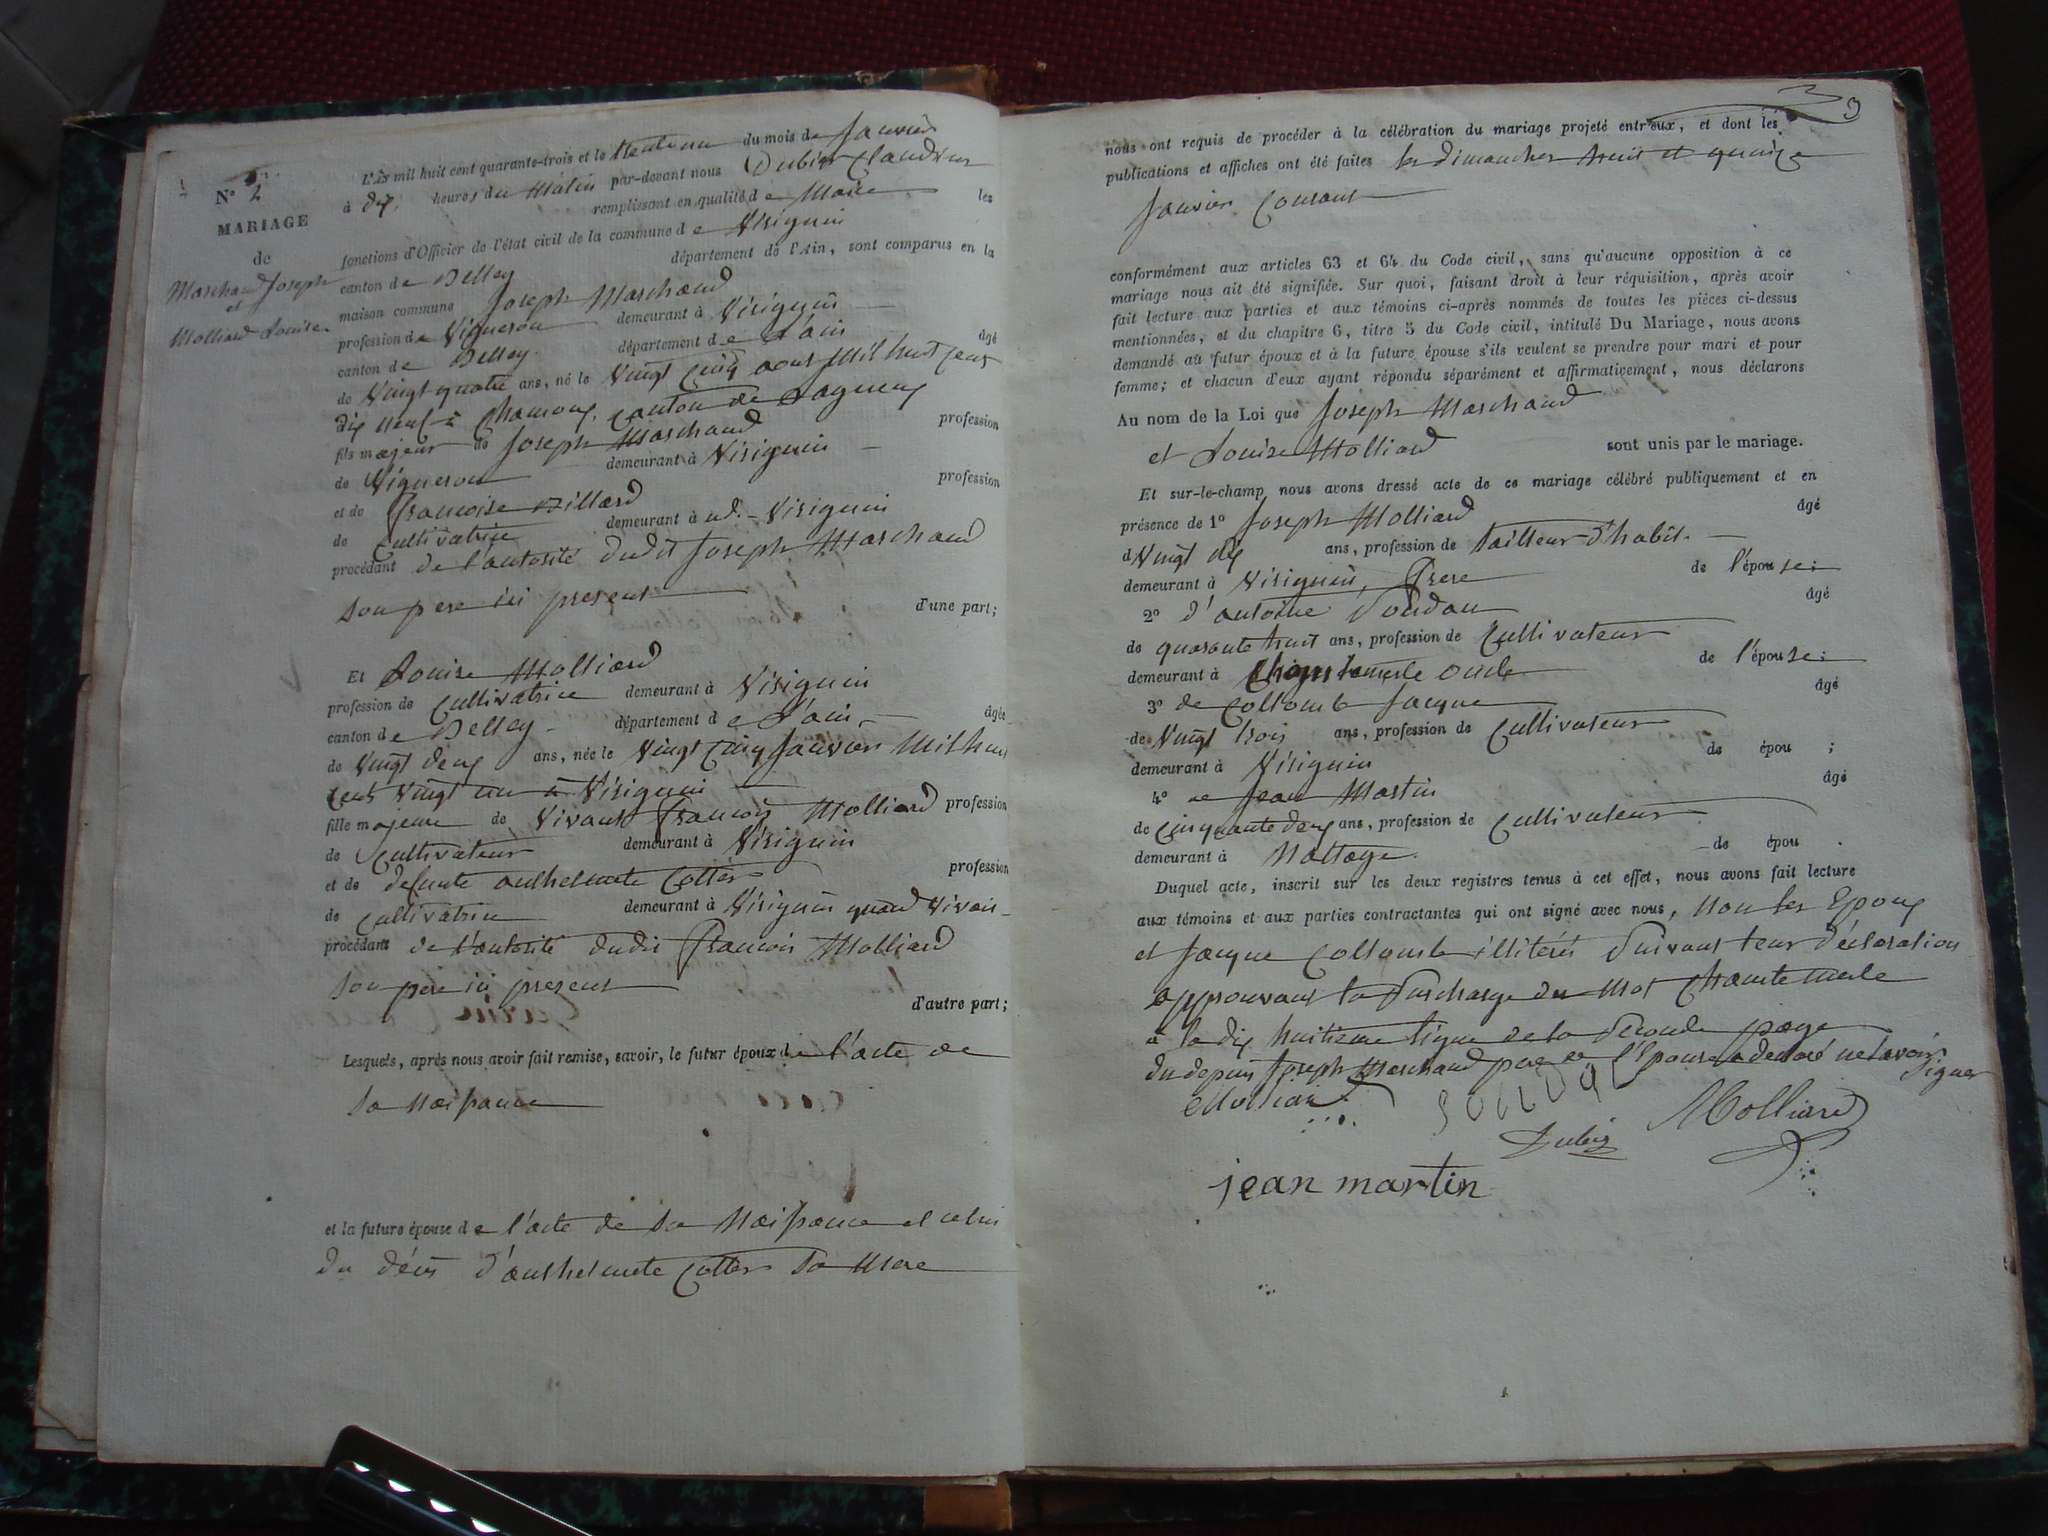 N° 2
MARIAGE
de
Marchand Joseph
et
Molliard Louise
L'An mil huit cent quarante-trois et le trente un du mois de Janvier
à dix heures du Matin par-devant nous Dubier Claudius
remplissant en qualité de Maire les
fonctions d'Officier de l'état civil de la commune de Virignin
canton de Belley département de l'Ain, sont comparus en la
maison commune Joseph Marchand
profession de Vigneron demeurant à Virignin
canton de Belley département de L'ain âgé
de Vingt quatre ans, né le Vingt Cinq aout Mil huit cent
dix neuf à canton de Lagnieu
fils majeur de Joseph Marchand profession
de Vigneron demeurant à Virignin
et de françoise Billard profession
de Cultivatrice demeurant à ud. Virignin
procédant de l'autorité dudit Joseph Marchand
Son pere ici present d'une part;
Et Louise Molliard
profession de Cultivatrice demeurant à Virignin
canton de Belley département de L'ain âgée
de Vingt deux ans, née le Vingt Cinq Janvier Mil huit
Cent Vingt un à Virignin
fille majeure de Vivant françois Molliard profession
de Cultivateur demeurant à Virignin
et de defunte anthelmete Cottier profession
de Cultivatrice demeurant à Virignin quand Vivait
procédant de l'autorité dudit françois Molliard
Son père ici present d'autre part;
Lesquels, après nous avoir fait remise, savoir, le futur époux de l'acte de
Sa Naissance
et la future épouse de l'acte de Sa Naissance et celui
du décès d'anthelmete Cottier Sa Mere
3
nous ont requis de procéder à la célébration du mariage projeté entr'eux, et dont les
publications et affiches ont été faites les dimanches huit et quinze
Janvier Courant
conformément aux articles 63 et 64 du Code civil, sans qu'aucune opposition à ce
mariage nous ait été signifiée. Sur quoi, faisant droit à leur réquisition, après avoir
fait lecture aux parties et aux témoins ci-après nommés de toutes les pièces ci-dessus
mentionnées, et du chapitre 6, titre 5 du Code civil, intitulé Du Mariage, nous avons
demandé au futur époux et à la future épouse s'ils veulent se prendre pour mari et pour
femme; et chacun d'eux ayant répondu séparément et affirmativement, nous déclarons
Au nom de la Loi que Joseph Marchand
et Louise Molliard sont unis par le mariage.
Et sur-le-champ nous avons dressé acte de ce mariage célébré publiquement et en
présence de 1° Joseph Molliard âgé
d Vingt dix ans, profession de Tailleur d'habit.
demeurant à Virignin, frere de l'épouse;
2° d'antoine Soudan âgé
de quarante huit ans, profession de Cultivateur
demeurant à Chantemerle oncle de l'épouse;
3° de Collomb Jacque âgé
de Vingt trois ans, profession de Cultivateur
demeurant à Virignin de épou ;
4° de Jean Martin âgé
de Cinquante deux ans, profession de Cultivateur
demeurant à Nattage de épou .
Duquel acte, inscrit sur les deux registres tenus à cet effet, nous avons fait lecture
aux témoins et aux parties contractantes qui ont signé avec nous, Non les Epoux
et Jacque Collomb illitérés Suivant leur déclaration
approuvant la Surcharge du Mot Chantemerle
à la dix huitieme ligne de la Seconde page
du depuis Joseph Marchand pere de l'Epoux a declaré ne savoir Signer
Molliard Soudan
Dubier Molliard
jean martin